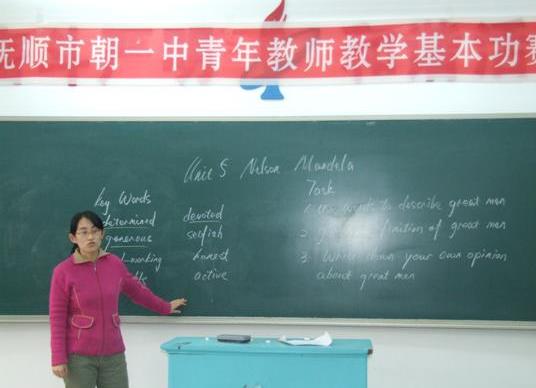 抚顺市朝一中青年教师教学基本功赛
Unit 5 Nelson Mandela
Key Words
Task
determined devoted
generous selfish
honest
active
words to describe great men
2. definition of great men
3. Write down your own opinion
about great men